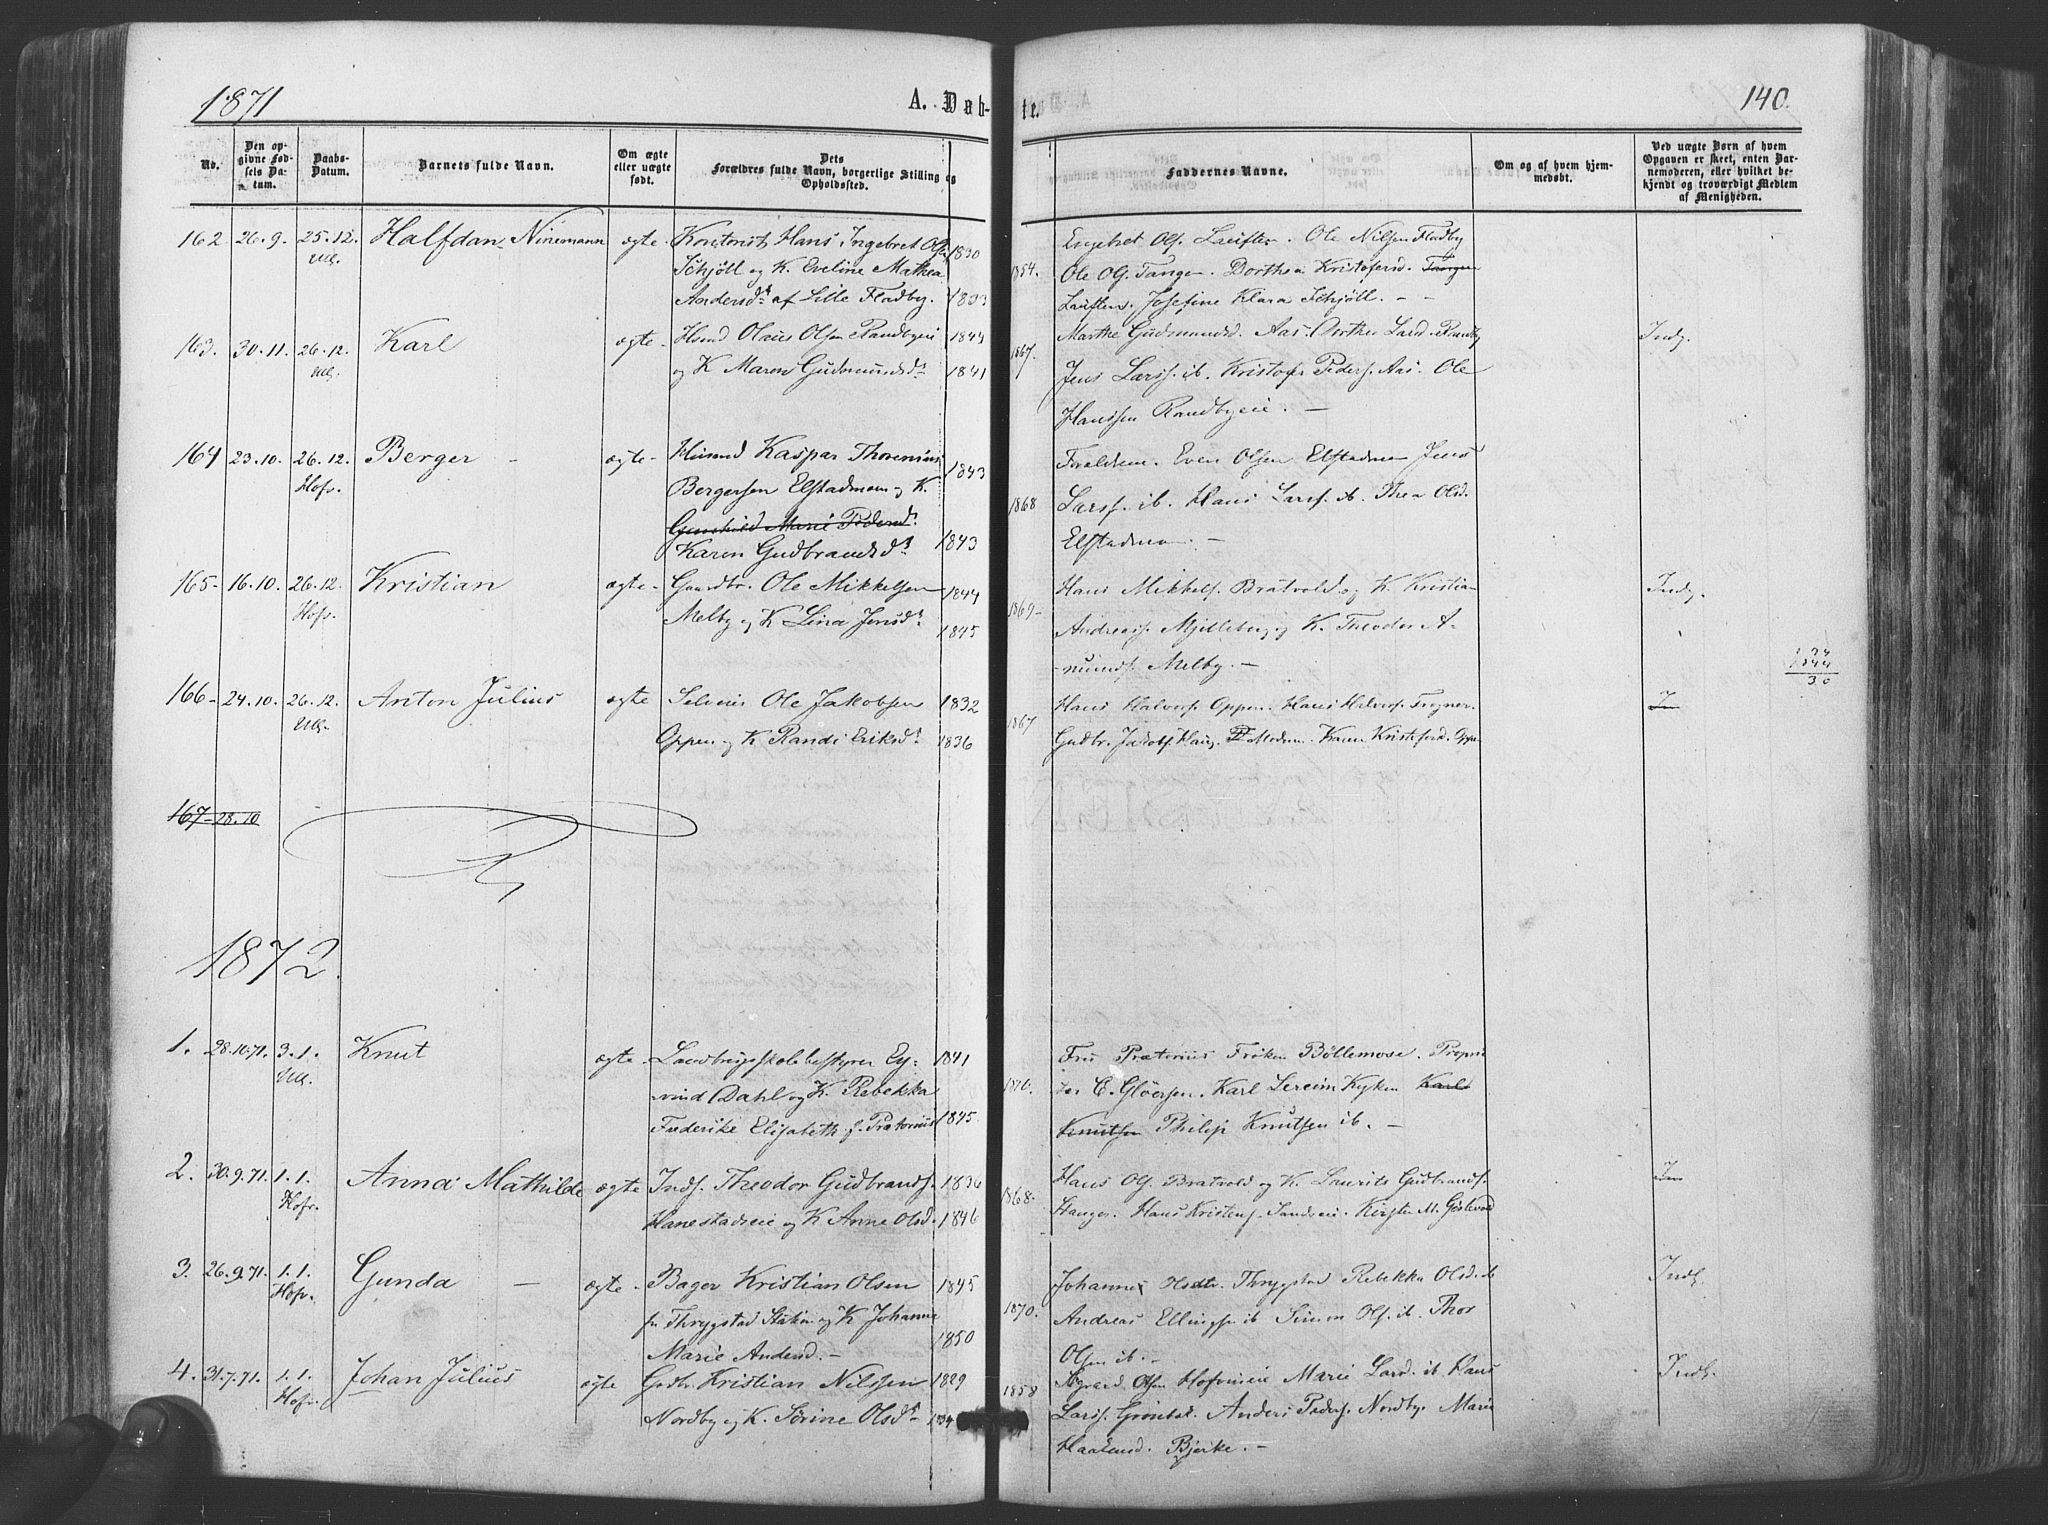 1871
A. Daab-
te.
140.
No.
Den op-
givne Fød-
sels Da-
tum.
Daabs-
Datum.
Barnets fulde Navn.
Om ægte
eller uægte
født.
Dets
Forældres fulde Navn, borgerlige Stilling og
Opholdssted.
Faddernes Navne.
Om og af hvem hjem-
medøbt.
Ved uægte Børn af hvem
Opgaven er skeet, enten Bar-
nemoderen, eller hvilket be-
kjendt og troværdigt Medlem
af Menigheden.
162. 26.9. 25.12. Halfdan ægte Hans Ingebret Olsen 1830
Ull.
Schjøll og K. Eveline Mathea
Andersdt af Lille Fladby. 1833
1854.
Engebret Ols. Ole Nilsen Fladby
Ole Ols. Tangen. Dorthea Kristofersd.
Josefine Klara Schjøll. - -
163. 30.11. 26.12. Karl ægte- Husmd Olaus Olsen Randbyeie 1844
Ull.
og K Maren Gudmundsdt 1841
1867.
Marthe Gudmundsd. Aas Dorthea Larsd. Randby
Jens Larss. ib. Kristofer Peders. Aas. Ole
Hanssen Randbyeie. -
Indf.
164 23.10. 26.12. Berger - ægte- Husmd Kaspar Thorenius 1843
Hofv.
Bergersen Elstadmoen og K.
Gunhild Marie Pedersdt
Karen Gudbrandsdt 1843
1868
Forældrene. Even Olsen Elstadmoen Jens
Larss. ib. Hans Larss. ib. Thea Olsd.
Elstadmoen. -
165- 16.10. 26.12. Kristian ægte- Gaardbr. Ole Mikkelsen 1844
Hofv.
Melby og K Lina Jensdt 1845
1869-
Hans Mikkels. Bratvold og K. Kristian
Andreass. Mjølleberg og K. Theodor A-
munds. Melby. -
Indf.
1844
30
166- 24.10. 26.12. Anton Julius ægte Selveier Ole Jakobsen 1832
Ull.
Oppen og K Randi Eriksdt 1836
1867
Hans Halvors. Oppen. Hans Halvors. Frogner.
Gudbr. Jakobs. Haug. Moderen. Karen Kristofersd. Oppen
167- 28.10
1872.
1. 28.10.71. 3.1. Knut ægte- Landbrugsskolebestyrer Ey- 1841
Ull.
vind Dahl og K. Rebekka
Frederike Elisabeth f. Prætorius 1845
1870.
Fru Prætorius Frøken Böllemose. Proprie
tær E. Gløersen. Karl Kyken Karl
Knutsen Philip Knutsen ib. -
2. 30.9.71. 1.1. Anna Mathilde ægte Inds. Theodor Gudbrands. 1836
Hofv.
Hanestadeie og K Anne Olsd. 1846
1868.
Hans Ols. Bratvold og K. Laurits Gudbrands.
Hans Kristens. Kirsten M.
3. 26.9.71. 1.1. Gunda - ægte- Bager Kristian Olsen 1845
Hofv.
fra Thrygstad Station og K Johanne
Marie Andersd. - 1850
1870.
Johannes Olsdtr. Thrygstad Rebekka Olsd. ib
Andreas Ellings. ib Simon Ols. ib. Thor
Olsen ib. -
Indf.
4. 31.7.71. 1.1. Johan Julius ægte Grdbr. Kristian Nilssen 1829
Hofv.
Nordby og K. Sørine Olsdt 1834
1858
Olsen Hofvineie Marie Larsd. ib Hans
Larss. Grøndal. Anders Peders. Nordby. Marie
Haakensd. Bjerke. -
Indf.